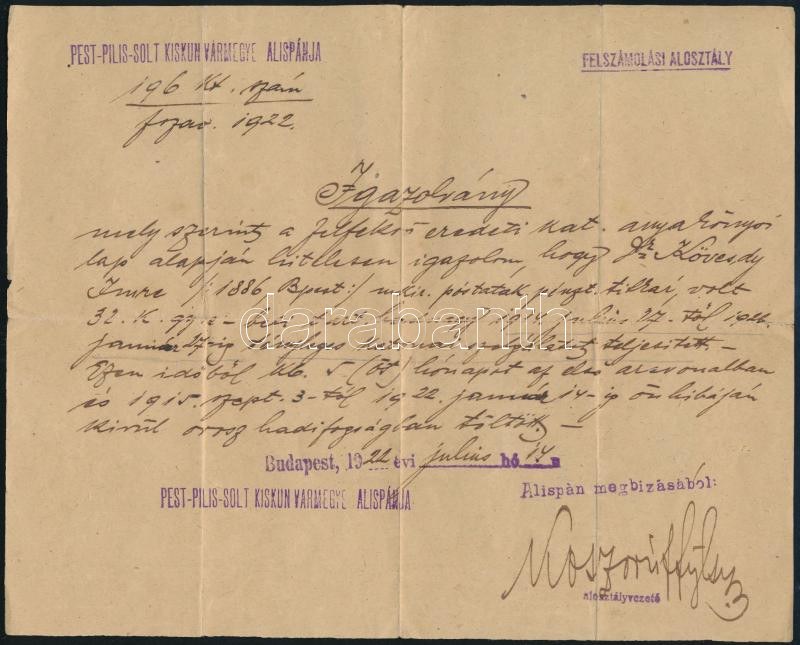 PEST-PILIS-SOLT KISKUN VÁRMEGYE ALISPÁNJA
FELSZÁMOLÁSI ALOSZTÁLY
196 kt. szám
fszáv. 1922.
Igazolvány
mely szerint a felfekvő eredeti kat. anyakönyvi
lap alapján hitelesen igazolom, hogy Dr. Kövesdy
Imre /:1886, Bpest:/ m. kir. postatak. pénzt. titkár, volt
32. k. gy. e. 1914 julius 27-től 1922.
január 27-ig tényleges katonai szolgálatot teljesített.-
Ezen időből kb. 5 (öt) hónapot az első arcvonalban
és 1915. szept. 3-tól 1922. január 14-ig önhibáján
kívül orosz hadifogságban töltött.-
Budapest, 1922 évi julius hó 14 n
PEST-PILIS-SOLT KISKUN VÁRMEGYE ALISPÁNJA
Alispán megbizásából:
alosztályvezető
darabanth